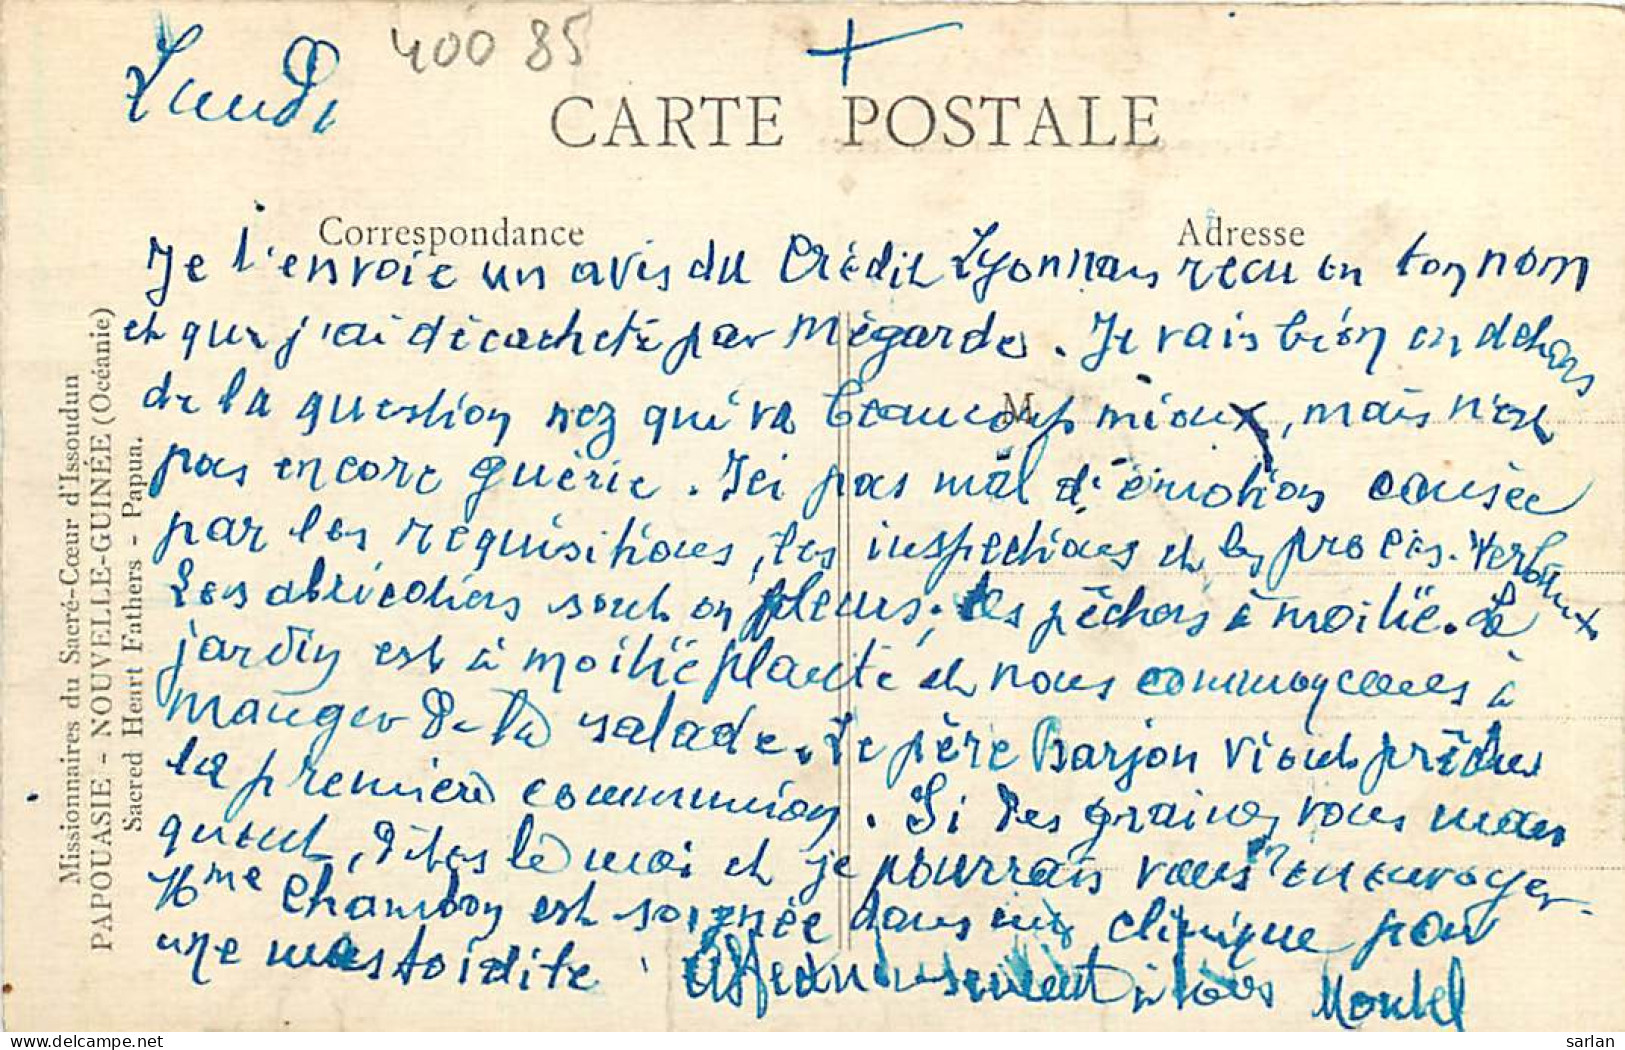 400 85
Lundi
CARTE POSTALE
Correspondance
Adresse
Je t'envoie un avis du Crédit Lyonnais recu en ton nom
et que j'ai décacheté par mégarde. Je vais bien en dehors
de la question nez qui va beaucoup mieux, mais n'est
M
pas encore guérie. Ici pas mal d'émotion causée
par les réquisitions, les inspections et les procès-verbaux
Les abricotiers sont en fleurs, les pêchers à moitié. Le
jardin est à moitié planté et nous commençons à
manger de la salade. Le père Barjon vient prêcher
la première communion. Si des graines vous man
quent, dites le moi et je pourrais vous en envoyer.
Mme Chambon est soignée dans une clinique pour
une mastoidite. Affectueusement à tous
Missionnaires du Sacré-Cœur d'Issoudun
PAPOUASIE - NOUVELLE-GUINÉE (Océanie)
Sacred Heart Fathers - Papua.
sarlan